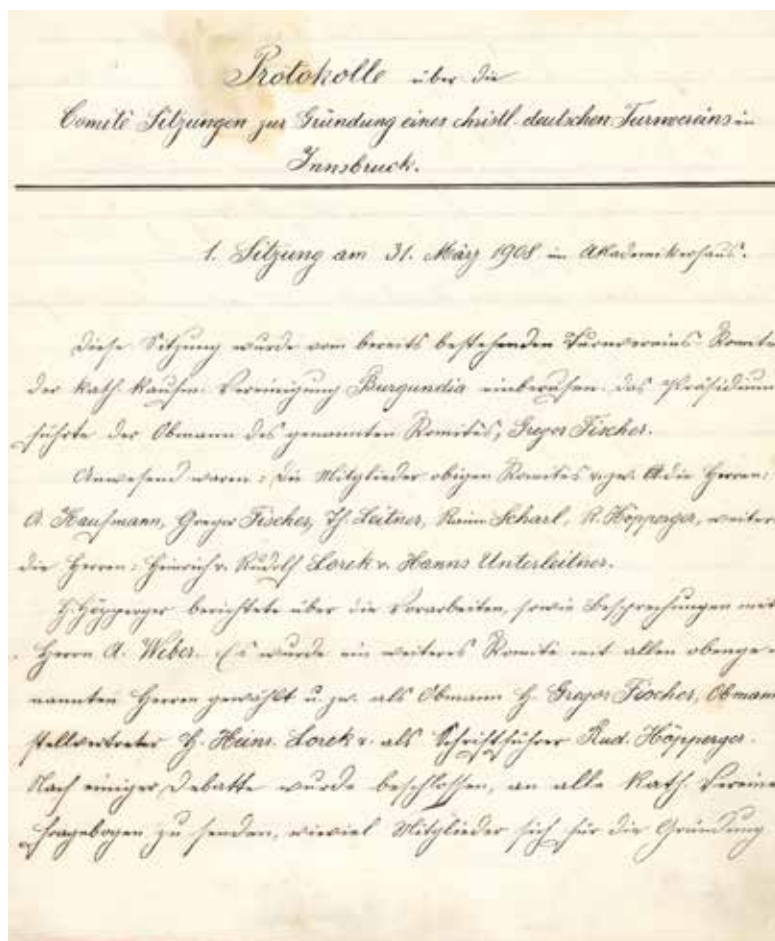 Protokolle über die
Comité Sitzungen zur Gründung eines christl. deutschen Turnvereins in
Innsbruck.
1. Sitzung am 31. März 1908 im Akademikerhaus.
Diese Sitzung wurde vom bereits bestehenden Turnvereins-Komite
der kath. kaufm. Vereinigung Burgundia einberufen. Das Präsidium
führte der Obmann des genannten Komites, Gregor Fischer.
Anwesend waren: Die Mitglieder obigen Komites u. zw. die Herren:
A. Kaufmann, Gregor Fischer, Th. Leitner, Raim. Scharl, R. Höpperger, weiters
die Herren: Heinrich u. Rudolf Lorek u. Hanns Unterleitner.
H. Höpperger berichtete über die Vorarbeiten, sowie Besprechungen mit
Herrn A. Weber. Es wurde ein weiteres Komite mit allen obenge-
nannten Herren gewählt u. zw. als Obmann H. Gregor Fischer, Obmann
stellvertreter H. Heinr. Lorek u. als Schriftführer Rud. Höpperger.
Nach einiger Debatte wurde beschlossen, an alle kath. Vereine
Fragebogen zu senden, wieviel Mitglieder sich für die Gründung